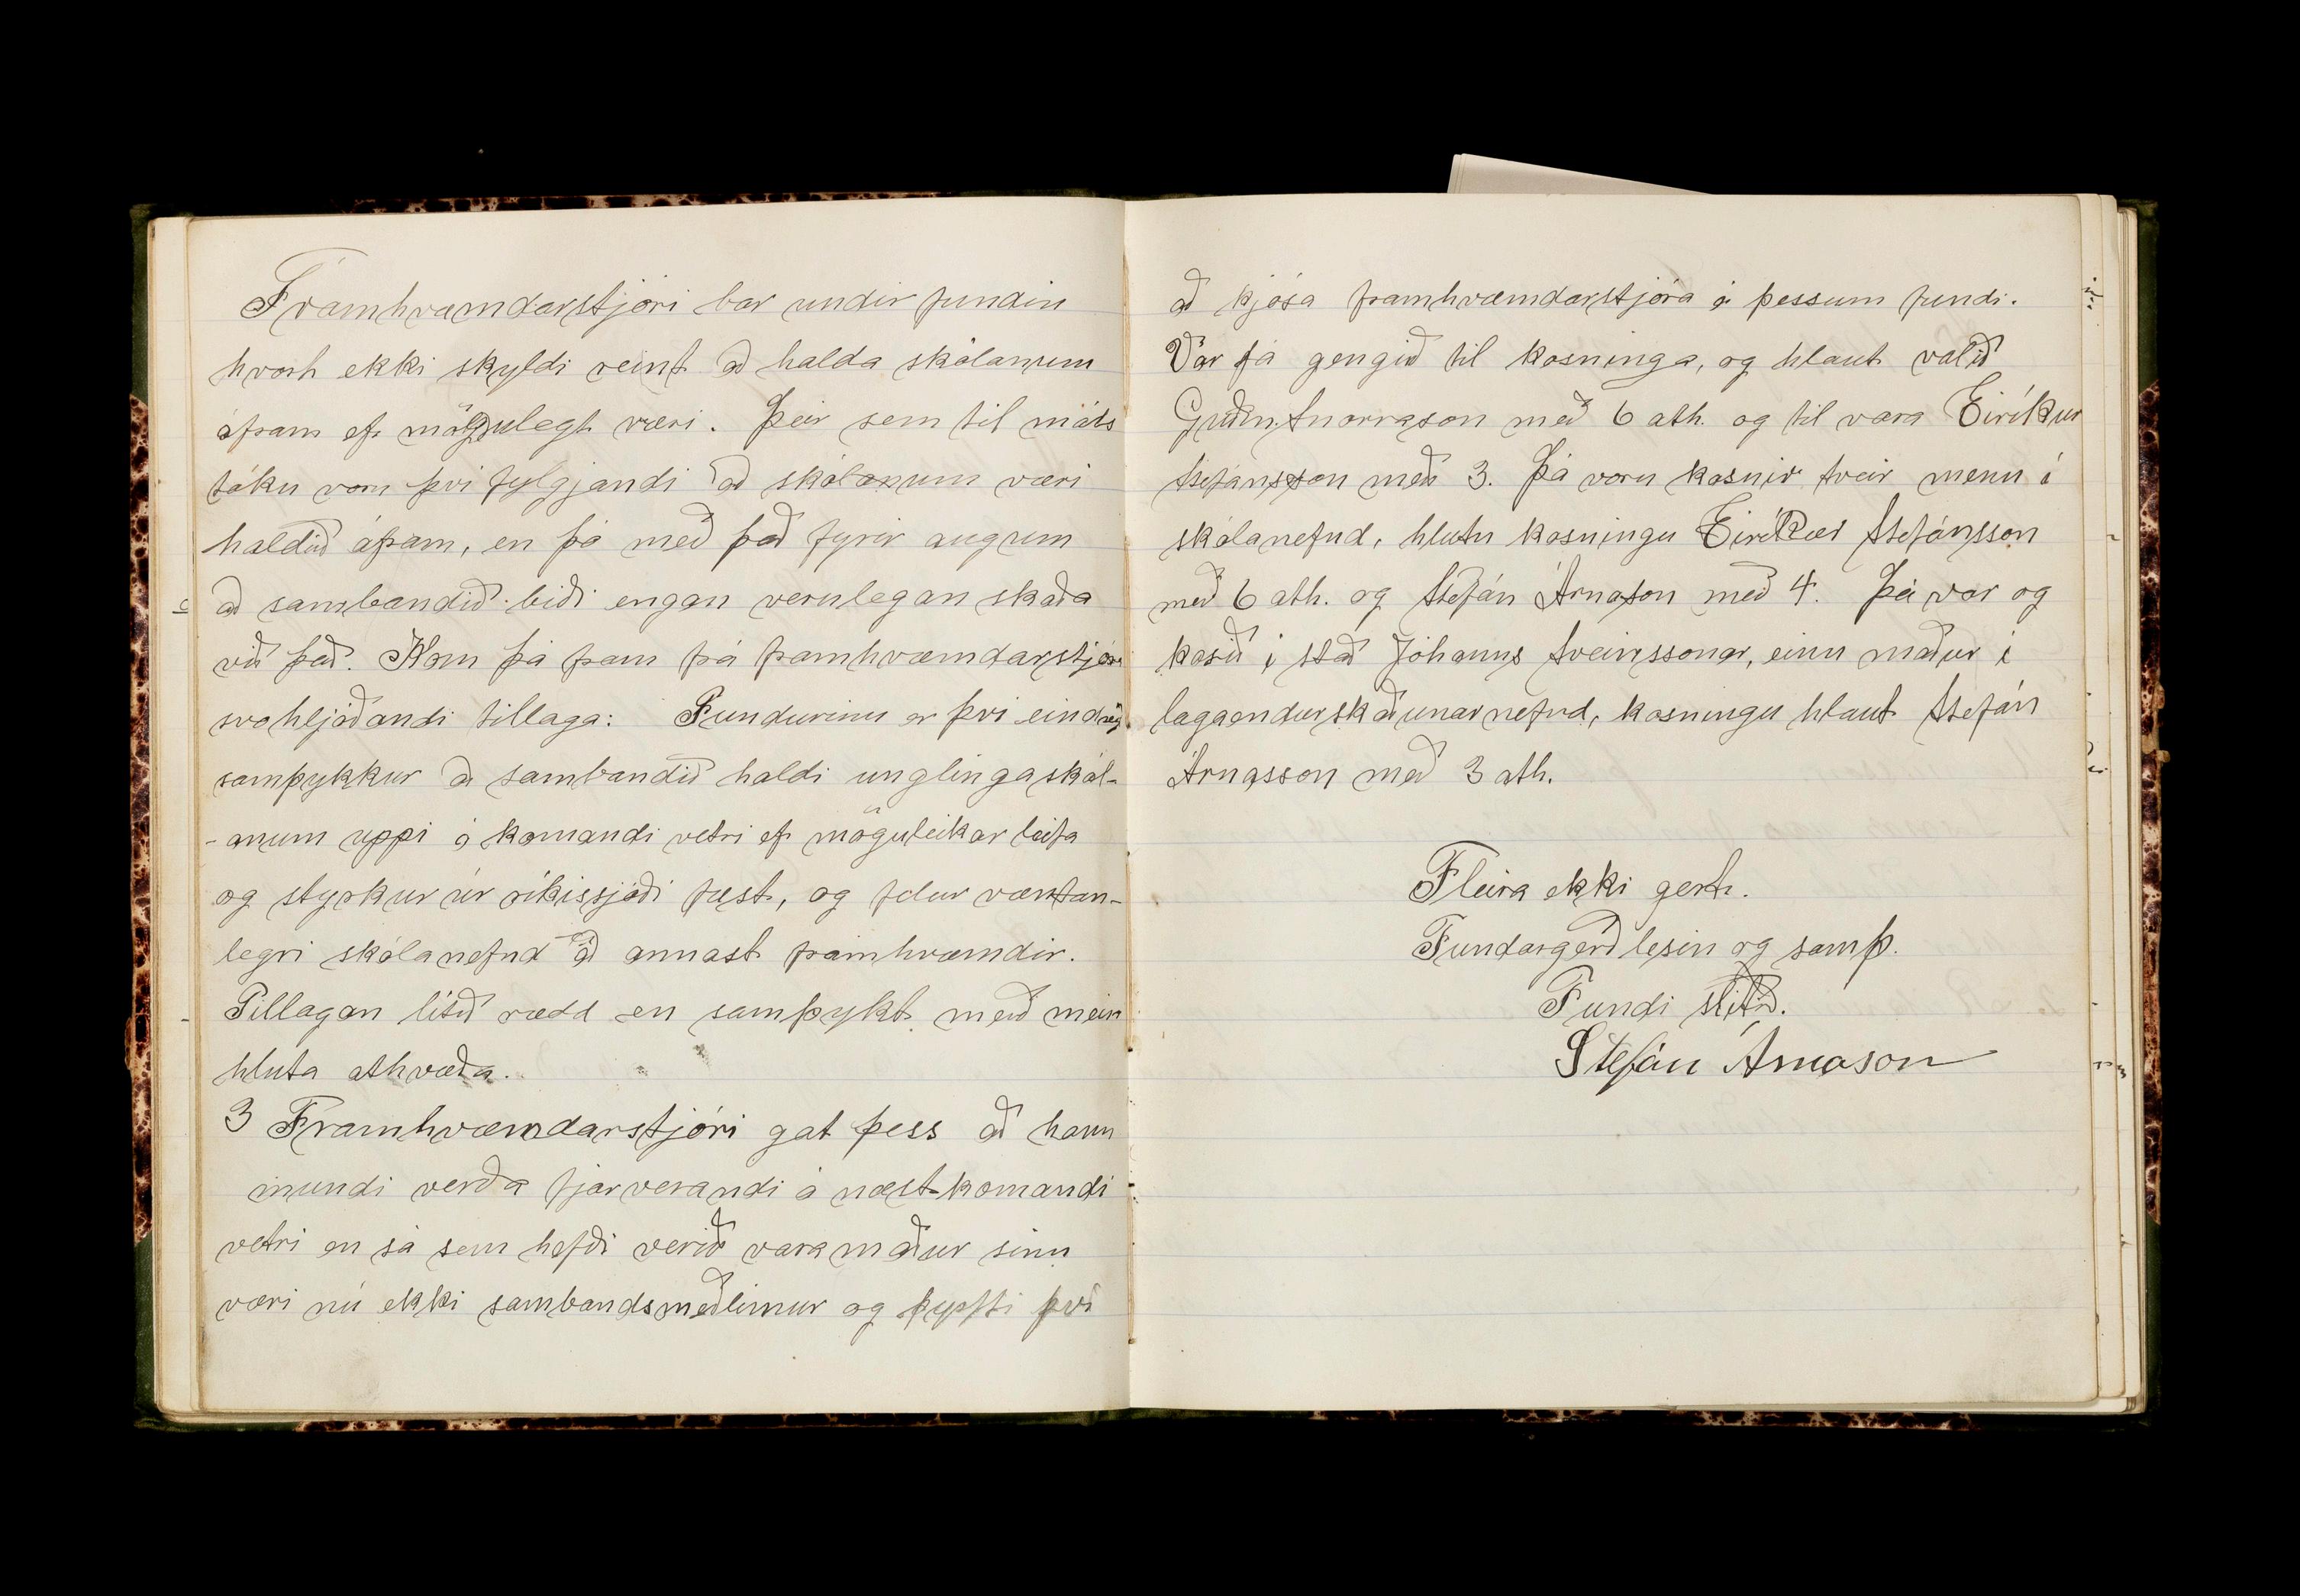 Framhvæmdarstjóri bar undir fundin
hvort ekki skyldi reint að halda skólanum
áfram ef mögulegt væri. Þeir sem til máls
tóku voru því fylgjandi að skólanum væri
haldið áfram, en þó með það fyrir augum
að sambandið biði engan verulegan skaða
við það. Kom þá fram frá framhvæmdarstjóra
svohljóðandi tillaga: Fundurinn er því eindreg.
samþykkur að sambandið haldi unglingaskól-
-anum uppi á komandi vetri ef möguleikar leifa
og styrkur úr ríkissjóði fæst, og felur væntan-
legri skólanefnd að annast framhvæmdir.
Tillagan lítið rædd en samþykt með mein
hluta athvæða.
3 Framhvæmdarstjóri gat þess að hann
mundi verða fjarverandi á næst komandi
vetri en sá sem hefði verið varamaður sinn
væri nú ekki sambandsmeðlimur og þyrfti því
að kjósa framhvæmdarstjóra á þessum fundi.
Var þá gengið til kosninga, og hlaut valið
Guðm. Snorrason með 6 ath. og til vara Eiríkur
Stefánsson með 3. Þá voru kosnir tveir menn í
skólanefnd, hlutu kosningu Eiríkur Stefánsson
með 6 ath. og Stefán Árnason með 4. Þá var og
kosið í stað Jóhanns Sveinssonar, einn maður í
lagaendurskoðunarnefnd, kosningu hlaut Stefán
Árnasson með 3 ath.
Fleira ekki gert.
Fundargerð lesin og samþ.
Fundi slitið.
Stefán Árnason